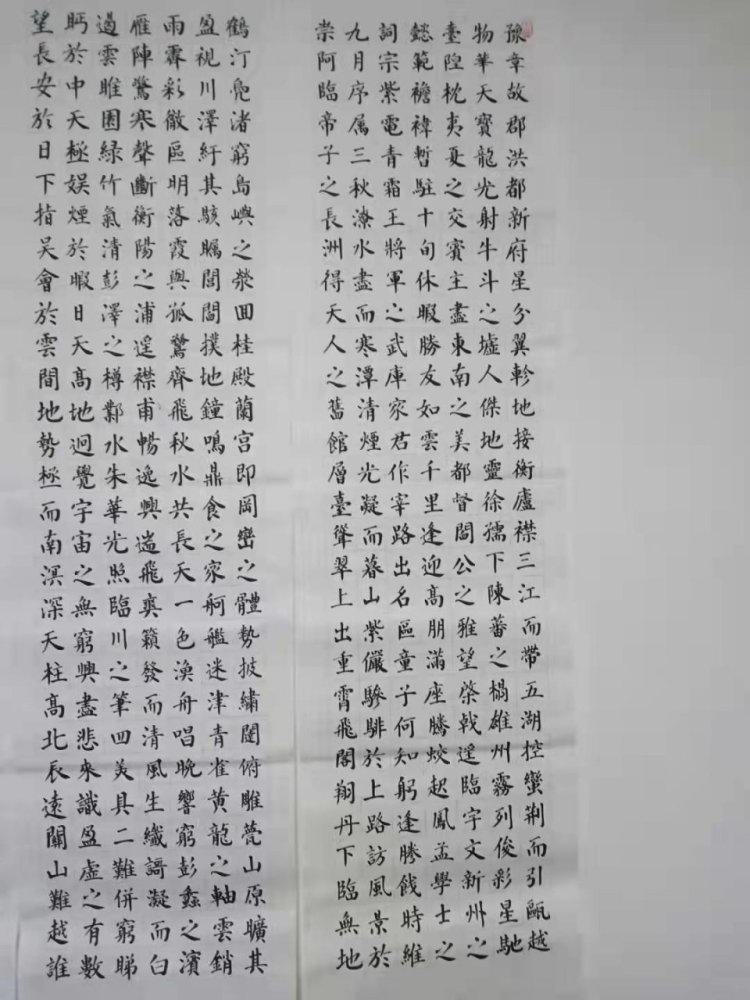 豫章故郡洪都新府星分翼軫地接衡廬襟三江而帶五湖控蠻荆而引甌越
物華天寳龍光射牛斗之墟人傑地靈徐孺下陳蕃之榻雄州霧列俊彩星馳
臺隍枕夷夏之交賓主盡東南之美都督閻公之雅望棨戟遥臨宇文新州之
懿範襜褘暫駐十旬休暇勝友如雲千里逢迎高朋滿座騰蛟起鳳孟學士之
詞宗紫電青霜王將軍之武庫家君作宰路出名區童子何知躬逢勝餞時維
九月序属三秋潦水盡而寒潭清煙光凝而暮山紫儼驂騑於上路訪風景於
崇阿臨帝子之長洲得天人之舊館層臺聳翠上出重霄飛閣翔丹下臨無地
鶴汀鳧渚窮島嶼之縈回桂殿蘭宫即岡巒之體勢披繡闥俯雕甍山原曠其
盈視川澤紆其駭矚閭閻撲地鐘鳴鼎食之家舸艦迷津青雀黄龍之軸雲銷
雨霽彩徹區明落霞與孤鶩齊飛秋水共長天一色漁舟唱晚響窮彭蠡之濱
雁陣驚寒聲斷衡陽之浦遥襟甫暢逸興遄飛爽籟發而清風生纖謌凝而白
遏雲睢園緑竹氣清彭澤之樽鄴水朱華光照臨川之筆四美具二難併窮睇
眄於中天極娱煙於暇日天高地迥覺宇宙之無窮興盡悲來識盈虚之有數
望長安於日下指吴會於雲間地勢極而南溟深天柱高北辰遠關山難越誰